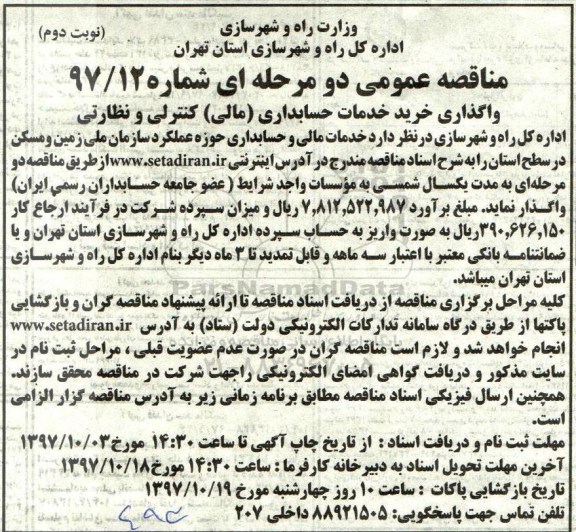 وزارت راه و شهرسازی
(نوبت دوم)
اداره کل راه و شهرسازی استان تهران
مناقصه عمومی دو مرحله ای شماره ۹۷/۱۲
واگذاری خرید خدمات حسابداری (مالی) کنترلی و نظارتی
اداره کل راه و شهرسازی در نظر دارد خدمات مالی و حسابداری حوزه عملکرد سازمان ملی زمین و مسکن
در سطح استان را به شرح اسناد مناقصه مندرج در آدرس اینترنتی www.setadiran.ir از طریق مناقصه دو
مرحله‌ای به مدت یکسال شمسی به مؤسسات واجد شرایط (عضو جامعه حسابداران رسمی ایران)
واگذار نماید. مبلغ برآورد ۷,۸۱۲,۵۲۲,۹۸۷ ریال و میزان سپرده شرکت در فرآیند ارجاع کار
۳۹۰,۶۲۶,۱۵۰ ریال به صورت واریز به حساب سپرده اداره کل راه و شهرسازی استان تهران و یا
ضمانتنامه بانکی معتبر با اعتبار سه ماهه و قابل تمدید تا ۳ ماه دیگر بنام اداره کل راه و شهرسازی
استان تهران میباشد.
ParsNamadData
کلیه مراحل برگزاری مناقصه از دریافت اسناد مناقصه تا ارائه پیشنهاد مناقصه گران و بازگشایی
پاکتها از طریق درگاه سامانه تدارکات الکترونیکی دولت (ستاد) به آدرس www.setadiran.ir
انجام خواهد شد و لازم است مناقصه گران در صورت عدم عضویت قبلی، مراحل ثبت نام در
سایت مذکور و دریافت گواهی امضای الکترونیکی را جهت شرکت در مناقصه محقق سازند.
همچنین ارسال فیزیکی اسناد مناقصه مطابق برنامه زمانی زیر به آدرس مناقصه گزار الزامی
است.
مهلت ثبت نام و دریافت اسناد : از تاریخ چاپ آگهی تا ساعت ۱۴:۳۰ مورخ ۱۳۹۷/۱۰/۰۳
آخرین مهلت تحویل اسناد به دبیرخانه کارفرما : ساعت ۱۴:۳۰ مورخ ۱۳۹۷/۱۰/۱۸
تاریخ بازگشایی پاکات : ساعت ۱۰ روز چهارشنبه مورخ ۱۳۹۷/۱۰/۱۹
تلفن تماس جهت پاسخگویی: ۸۸۹۲۱۵۰۵ داخلی ۲۰۷